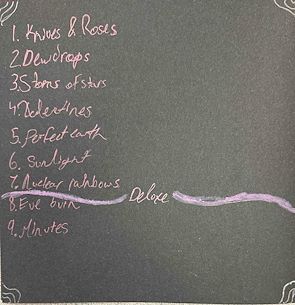 1. Knives & Roses
2. Dewdrops
3. Storms of stars
4. Valentines
5. Perfect earth
6. Sunlight
7. Nuclear rainbows
Deloxe
8. Eve burn
9. Minutes